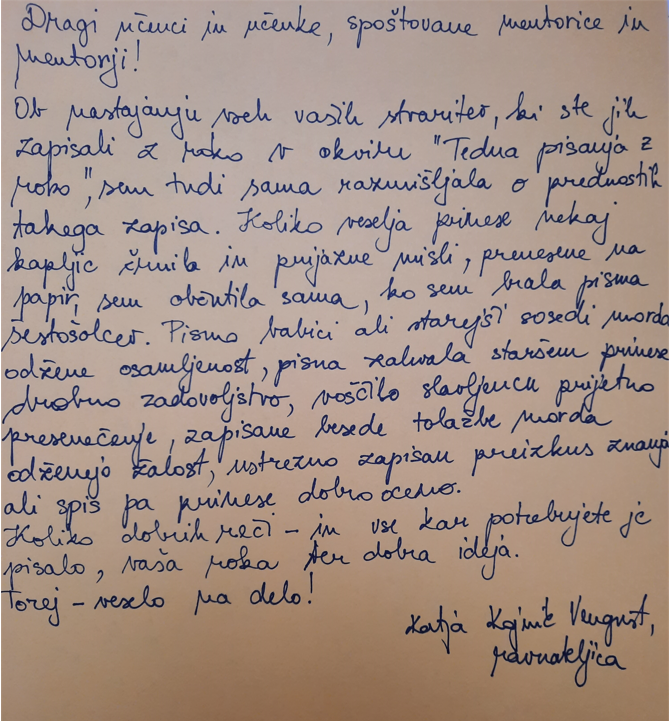 Dragi učenci in učenke, spoštovane mentorice in
mentorji!
Ob nastajanju vseh vaših stvaritev, ki ste jih
zapisali z roko v okviru "Tedna pisanja z
roko", sem tudi sama razmišljala o prednostih
takega zapisa. Koliko veselja prinese nekaj
kapljic črnila in prijazne misli, prenesene na
papir, sem občutila sama, ko sem brala pisma
šestošolcev. Pismo babici ali starejši sosedi morda
odžene osamljenost, pisna zahvala staršem prinese
drobno zadovoljstvo, voščilo slavljencu prijetno
presenečenje, zapisane besede tolažbe morda
odženejo žalost, ustrezno zapisan preizkus znanja
ali spis pa prinese dobro oceno.
Koliko dobrih reči - in vse kar potrebujete je
pisalo, vaša roka ter dobra ideja.
Torej - veselo na delo!
Katja Kojnik Vengust,
ravnateljica